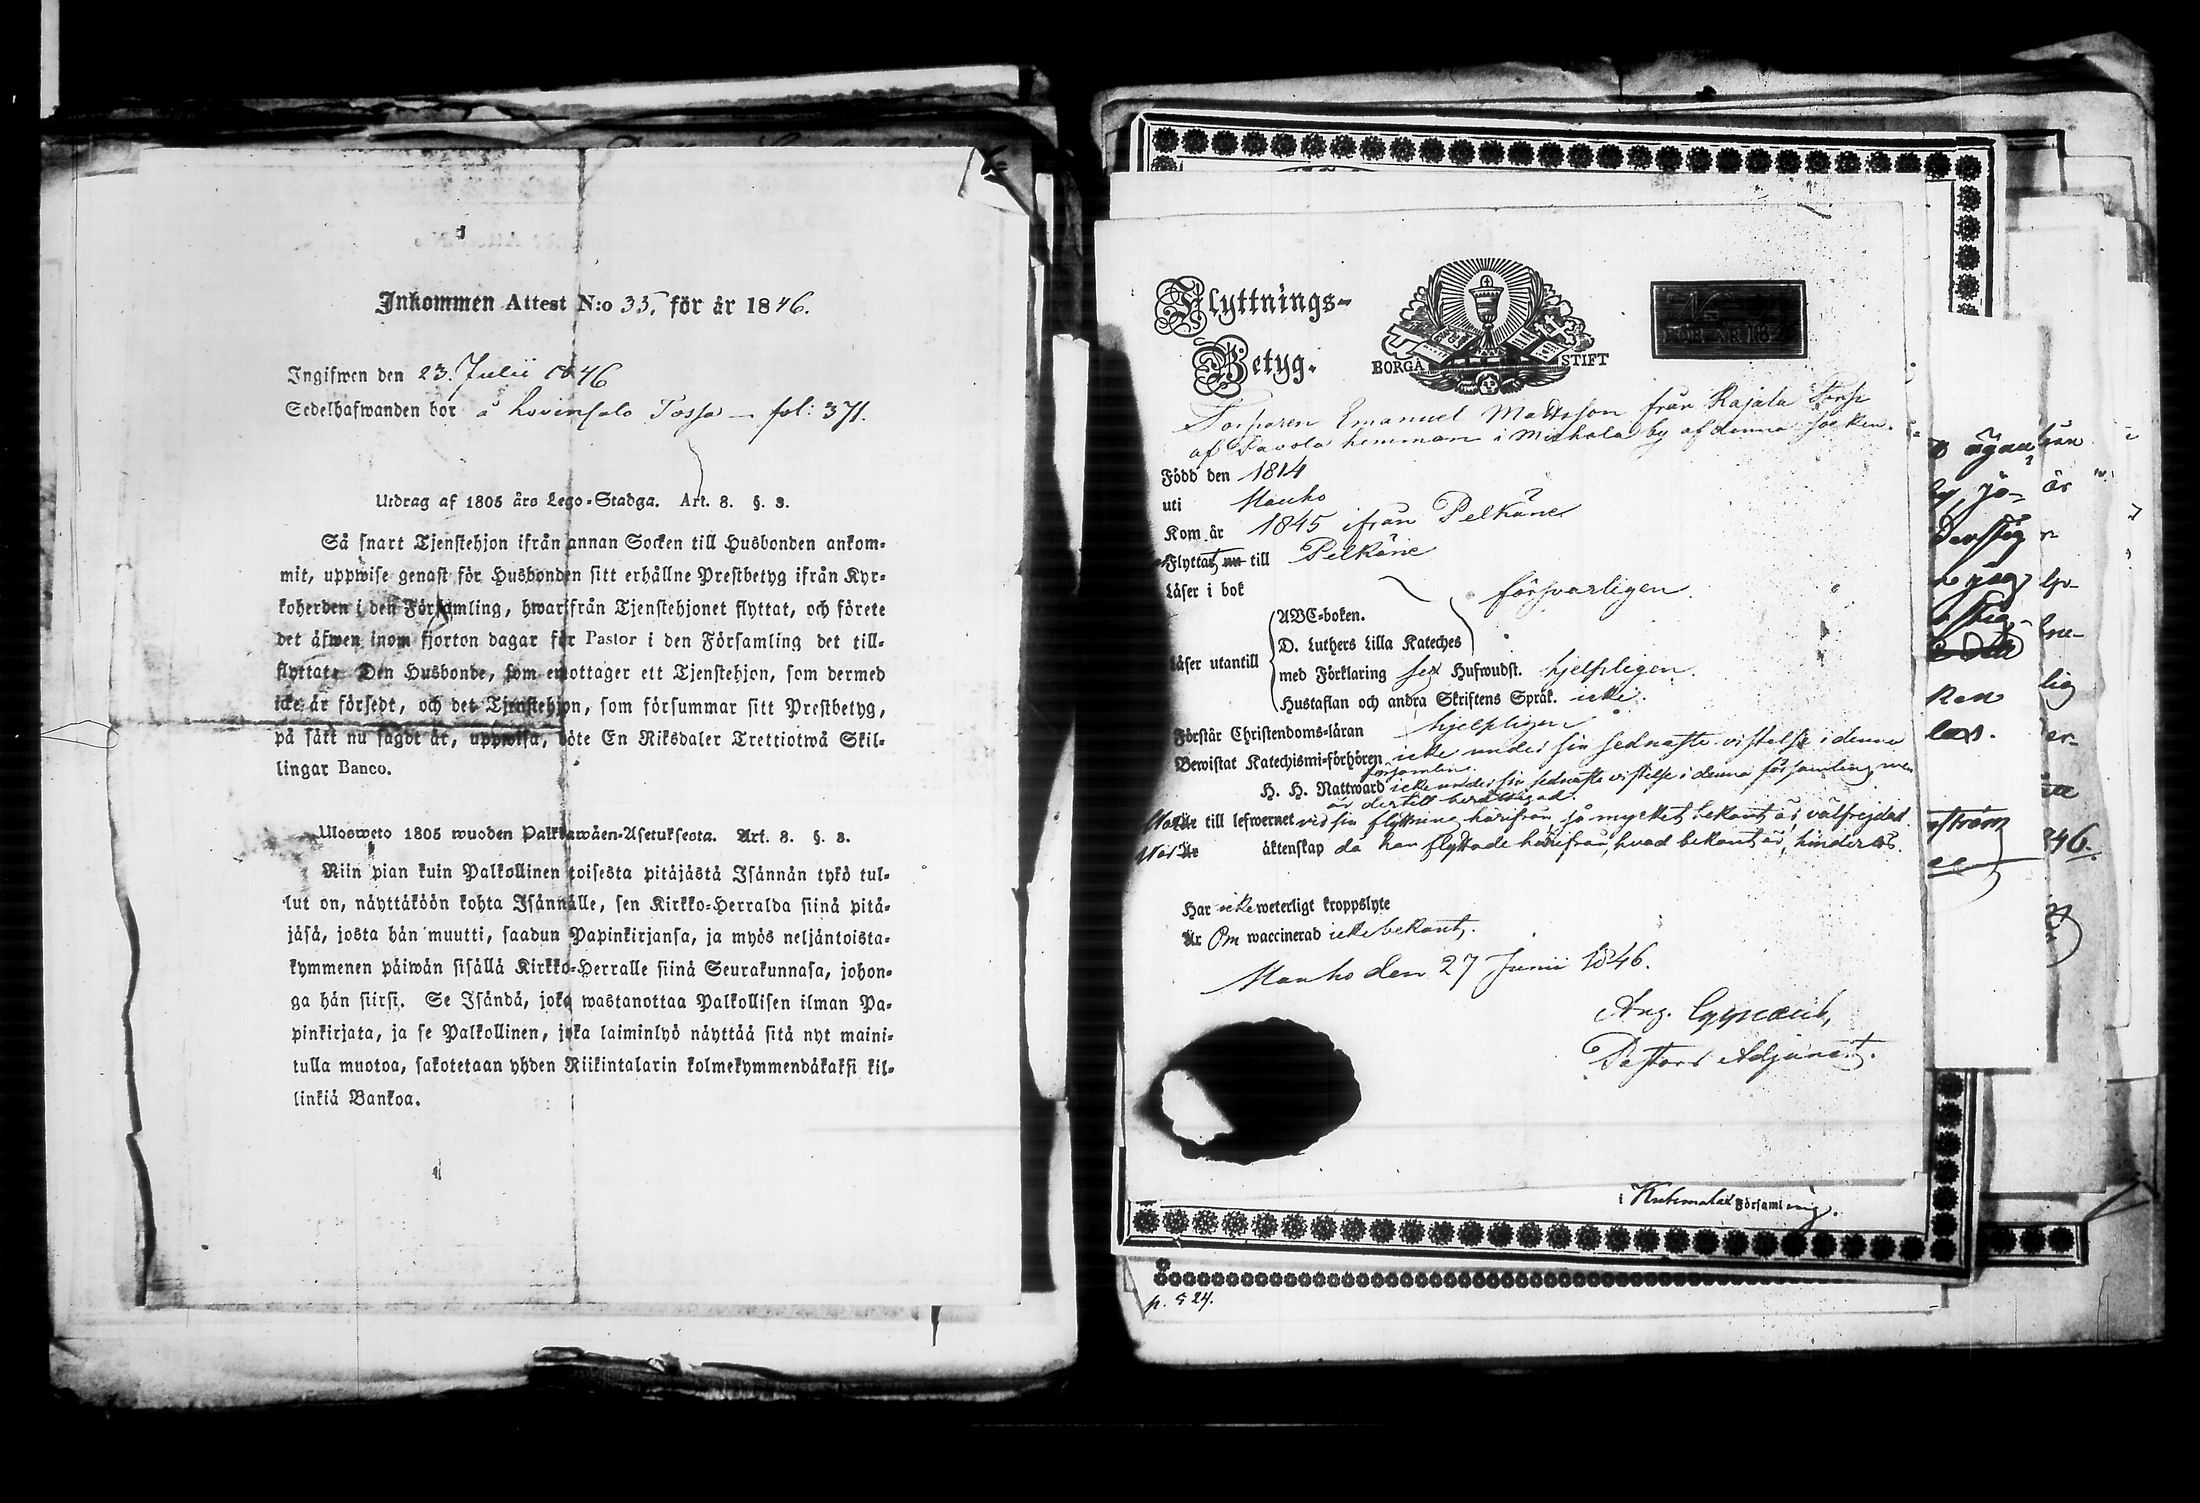 Inkommen Attest N:o 35, för år 1846.
Ingifwen den 23. Julii 1846
Sedelhafwanden bor å fol: 371.
Utdrag af 1805 års Lego-Stadga. Art. 8. §. 3.
Så snart Tjenstehjon ifrån annan Socken till Husbonden ankom-
mit, uppwise genast för Husbonden sitt erhållne Prestbetyg ifrån Kyr-
koherden i den Församling, hwarifrån Tjenstehjonet flyttat, och förete
det äfwen inom fjorton dagar för Pastor i den Församling det till-
flyttat. Den Husbonde, som emottager ett Tjenstehjon, som dermed
icke är försedt, och det Tjenstehjon, som försummar sitt Prestbetyg,
på sätt nu sagdt är, uppwisa, böte En Riksdaler Trettiotwå Skil-
lingar Banco.
Ulosweto 1805 wuoden Palkkawäen-Asetuksesta. Art. 8. §. 3.
Niin pian kuin Palkollinen toisesta pitäjästä Isännän tykö tul-
lut on, näyttäköön kohta Isännälle, sen Kirkko-Herralda siinä pitä-
jäsä, josta hän muutti, saadun Papinkirjansa, ja myös neljäntoista-
kymmenen päiwän sisällä Kirkko-Herralle siinä Seurakunnasa, johon-
ga hän siirsi. Se Isändä, joka wastanottaa Palkollisen ilman Pa-
pinkirjata, ja se Palkollinen, joka laiminlyö näyttää sitä nyt maini-
tulla muotoa, sakotetaan yhden Riikintalarin kolmekymmendäkaksi kil-
linkiä Bankoa.
Flyttnings-
Betyg.
BORGÅ STIFT
FÖR ÅR 18
Torparen Emanuel Mattsson från Rajala Torp
af hemman i by af denna socken.
Född den 1814
uti Hauho
Kom år 1845 ifrån Pelkäne
Flyttat nu till Pelkäne
Läser i bok försvarligen.
Läser utantill
ABC-boken.
D. Luthers Lilla Kateches
med Förklaring sex Hufwudst. hjelpligen.
Hustaflan och andra Skriftens Språk. icke.
Förstår Christendoms-läran hjelpligen
Bewistat Katechismi-förhören icke under sin sednaste vistelse i denna
församling.
H. H. Nattward icke under sin sednaste vistelse i denna församling, men
är dertill berättigad.
till lefwernet vid sin flyttning härifrån, så mycket bekant är, välfrejdad.
äktenskap då han flyttade härifrån, hvad bekant är, hinderlös.
Har icke weterligt kroppslyte
Är Om waccinerad icke bekant.
Hauho den 27 Junii 1846.
Aug.
Pastors Adjunct.
i Kuhmalax Församling.
p. 524.